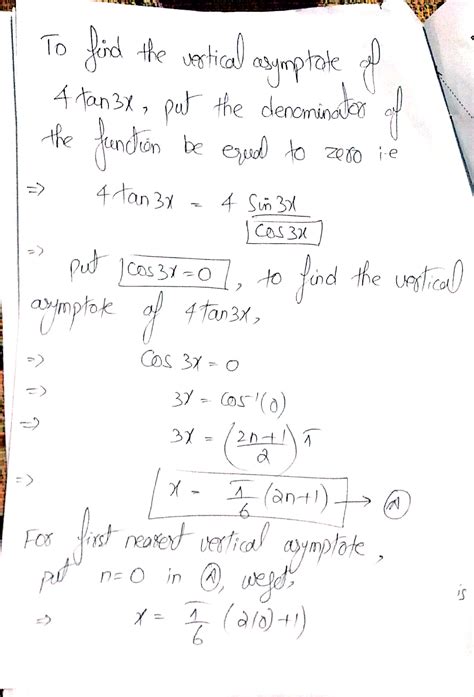 To find the vertical asymptote of
4 tan3x, put the denominator of
the function be equal to zero i.e
=> 4 tan 3x = 4 Sin 3x / Cos 3x
=> put cos3x = 0, to find the vertical
asymptote of 4tan3x,
=> Cos 3x = 0
=> 3x = Cos⁻¹(0)
=> 3x = (2n+1 / 2) π
=> x = π/6 (2n+1) → Ⓐ
For first nearest vertical asymptote,
put n=0 in Ⓐ, we get,
is
=> x = π/6 (2(0)+1)